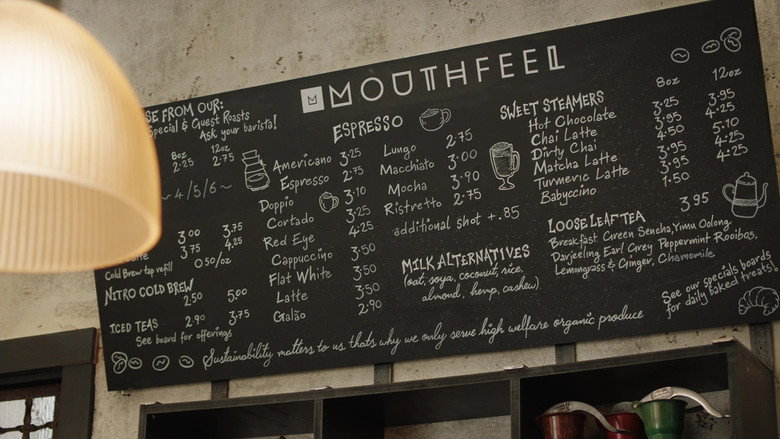 MOUTHFEEL
SE FROM OUR:
Special & Guest Roasts
Ask your barista!
8oz 12oz
2.25 2.75
~ 4/5/6 ~
3.00 3.75
3.75 4.25
Cold Brew tap refill 0.50/oz
NITRO COLD BREW
2.50 5.00
ICED TEAS 2.90 3.75
See board for offerings
ESPRESSO
Americano 3.25
Espresso 2.75
Doppio 3.10
Cortado 3.25
Red Eye 4.25
Cappuccino 3.50
Flat White 3.50
Latte 3.50
Galão 2.90
Lungo 2.75
Macchiato 3.00
Mocha 3.90
Ristretto 2.75
additional shot +.85
MILK ALTERNATIVES
(oat, soya, coconut, rice,
almond, hemp, cashew)
SWEET STEAMERS 8oz 12oz
Hot Chocolate 3.25 3.95
Chai Latte 3.95 4.25
Dirty Chai 4.50 5.10
Matcha Latte 3.95 4.25
Turmeric Latte 3.95 4.25
Babyccino 1.50
LOOSE LEAF TEA 3.95
Breakfast Green Sencha, Yimu Oolong,
Darjeeling Earl Grey Peppermint Rooibos,
Lemongrass & Ginger, Chamomile
See our specials boards
for daily baked treats!
Sustainability matters to us thats why we only serve high welfare organic produce